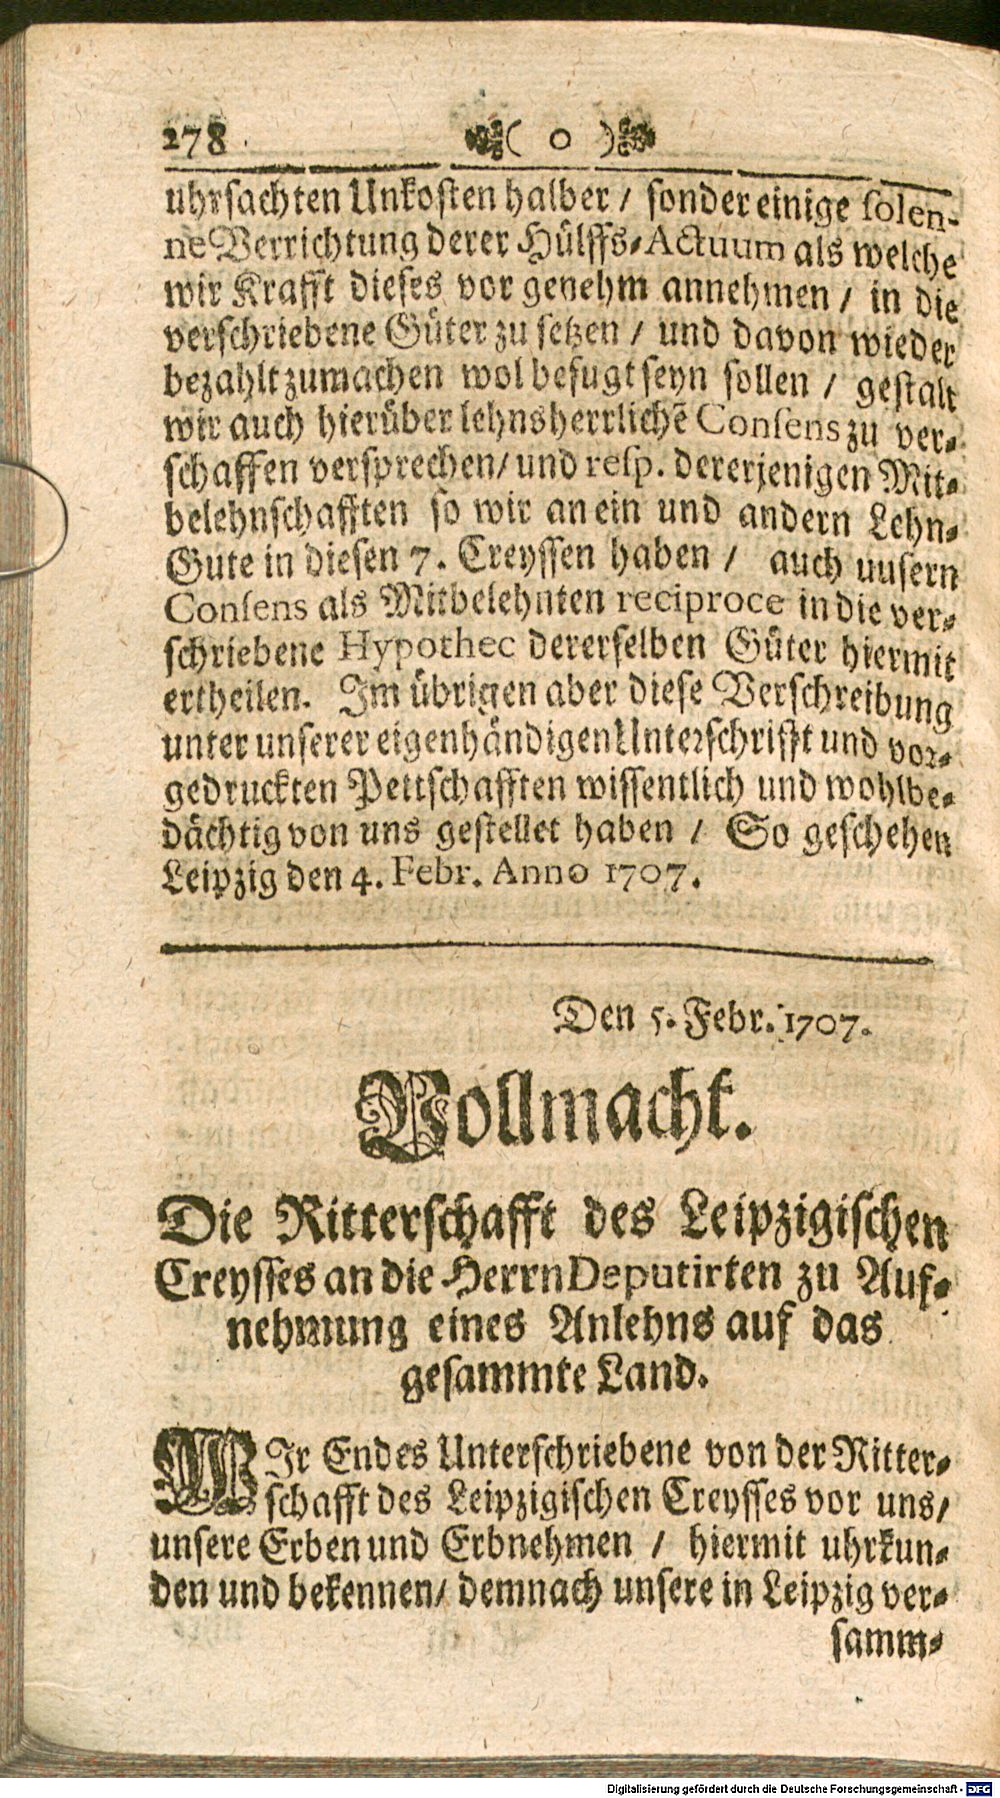 278 ( o )
uhrsachten Unkosten halber / sonder einige solen-
ne Verrichtung derer Hülffs-Actuum als welche
wir Krafft dieses vor genehm annehmen / in die
verschriebene Güter zu setzen / und davon wieder
bezahlt zumachen wol befugt seyn sollen / gestalt
wir auch hierüber lehnsherrlichẽ Consens zu ver-
schaffen versprechen / und resp. dererjenigen Mit-
belehnschafften so wir an ein und andern Lehn-
Gute in diesen 7. Creyssen haben / auch uusern
Consens als Mitbelehnten reciproce in die ver-
schriebene Hypothec dererselben Güter hiermit
ertheilen. Im übrigen aber diese Verschreibung
unter unserer eigenhändigen Unterschrifft und vor-
gedruckten Pettschafften wissentlich und wohlbe-
dächtig von uns gestellet haben / So geschehen
Leipzig den 4. Febr. Anno 1707.
Den 5. Febr. 1707.
Vollmacht.
Die Ritterschafft des Leipzigischen
Creysses an die Herrn Deputirten zu Auf-
nehmung eines Anlehns auf das
gesammte Land.
WIr Endes Unterschriebene von der Ritter-
schafft des Leipzigischen Creysses vor uns /
unsere Erben und Erbnehmen / hiermit uhrkun-
den und bekennen / demnach unsere in Leipzig ver-
samm-
Digitalisierung gefördert durch die Deutsche Forschungsgemeinschaft - DFG